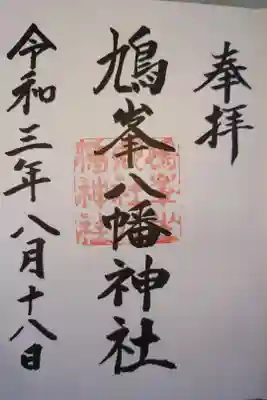 奉拝
鳩峯八幡神社
令和三年八月十八日